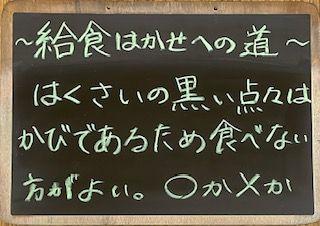 ～給食はかせへの道～
はくさいの黒い点々は
かびであるため食べない
方がよい。○か×か